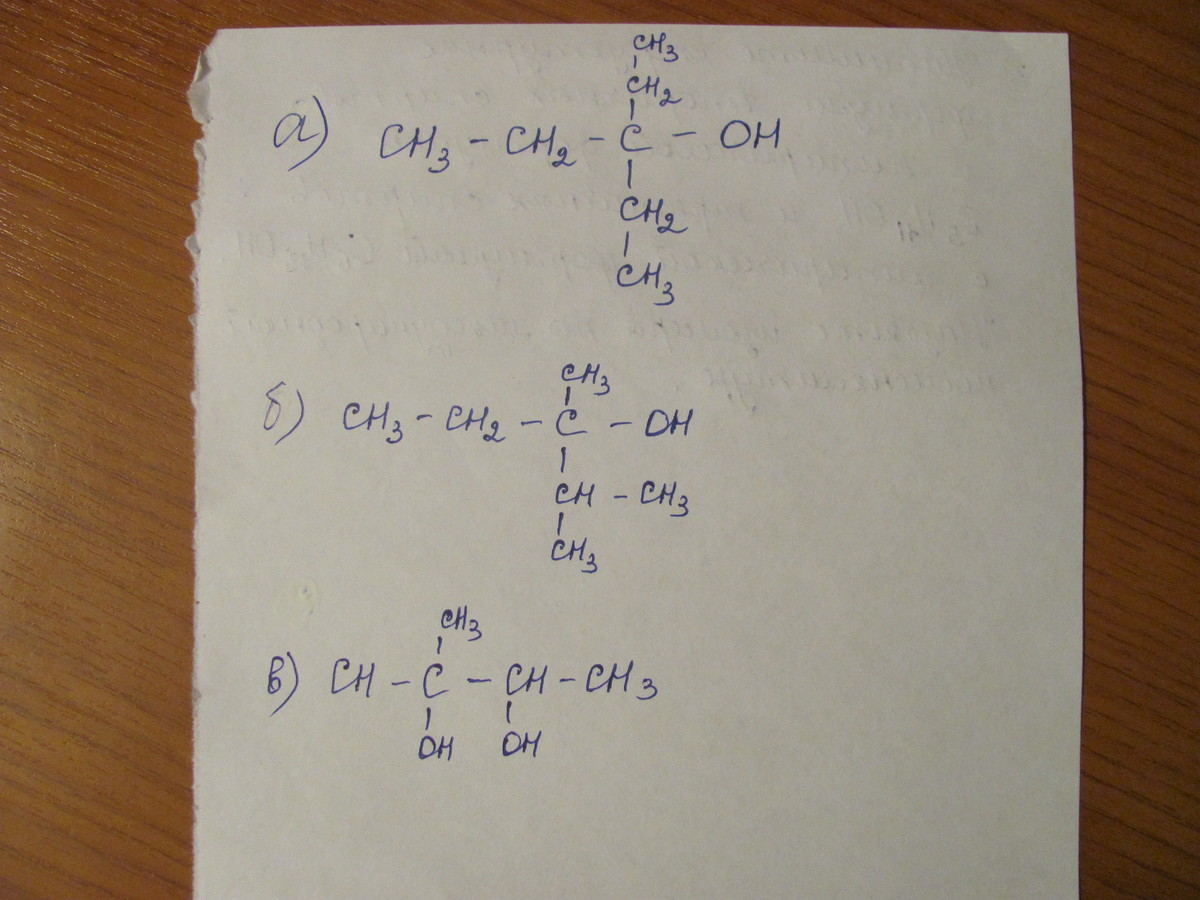 CH3
CH2
а) CH3 - CH2 - C - OH
CH2
CH3
CH3
б) CH3 - CH2 - C - OH
CH - CH3
CH3
CH3
в) CH - C - CH - CH3
OH OH